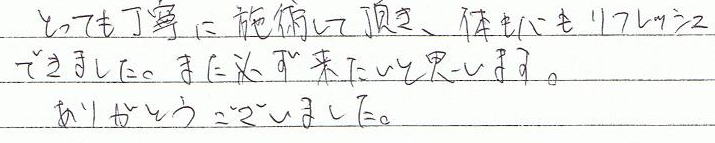 とっても丁寧に施術して頂き、体も心もリフレッシュ
できました。また必ず来たいと思います。
ありがとうございました。